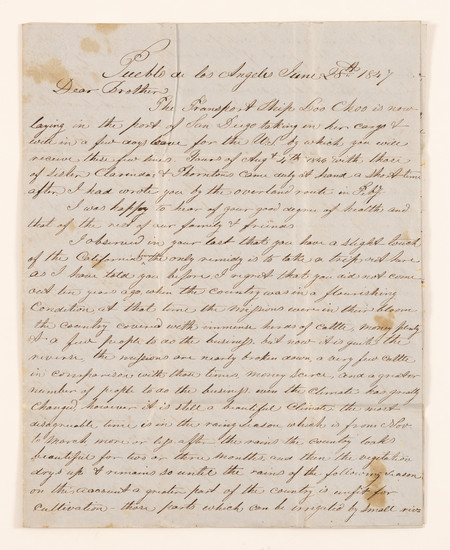 Pueblo de los Angeles June 28th 1847
Dear Brother
The Transport Ship Loo Choo is now
laying in the port of San Diego taking in her cargo &
will in a few days leave for the U.S. by which you will
receive these few lines. Yours of Augt 4th 1846 with those
of Sister Clarendas & Thorntons came duly at hand a short time
after I had wrote you by the overland route in Feby
I was happy to hear of your good degree of health and
that of the rest of our family & friends
I observed in your last that you have a slight touch
of the California the only remidy is to take a trip out here
as I have told you before, I regret that you did not come
out ten years ago when the country was in a flourishing
Condition at that time the missions were in their
the country covered with immense herds of cattle, money plenty
& a few people to do the business, but now it is quite the
reverse, the missions are nearly broken down a very few cattle
in comparison with those times money scarce, and a greater
number of people to do the business even the Climate has greatly
Changed, however it is still a beautiful Climate the most
disagreeable time is in the rainy season which is from Nov
to March more or less after the rains the country looks
beautiful for two or three months and then the vegetation
drys up & remains so until the rains of the following season
on this account a greater part of the country is unfit for
cultivation those parts which can be irrigated by small